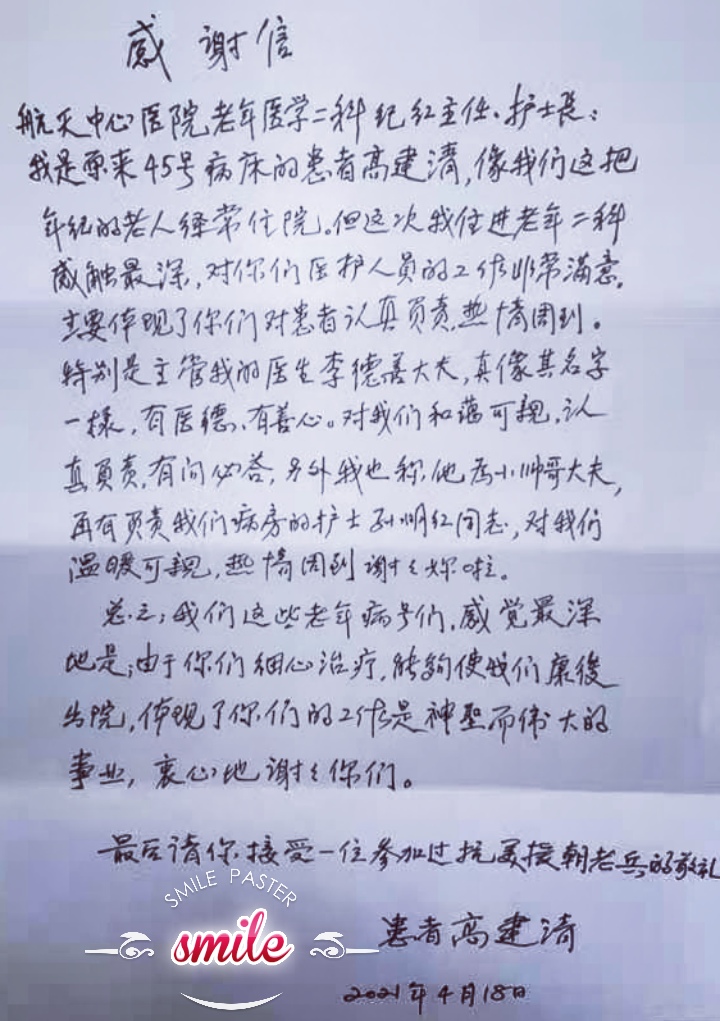 感谢信
航天中心医院老年医学二科纪红主任、护士长:
我是原来45号病床的患者高建清,像我们这把
年纪的老人经常住院。但这次我住进老年二科
感触最深,对你们医护人员的工作非常满意。
主要体现了你们对患者认真负责,热情周到。
特别是主管我的医生李德善大夫,真像其名字
一樣,有医德、有善心。对我们和蔼可親,认
真負责,有问必答,另外我也称他为小帅哥大夫,
再有負责我们病房的护士孙明红同志,对我们
温暖可親,热情周到谢々妳啦。
总之,我们这些老年病号们,感觉最深
地是,由于你们细心治疗,能夠使我们康復
出院,体现了你们的工作是神聖而伟大的
事业,衷心地谢々你们。
最后请你接受一位参加过抗美援朝老兵的敬礼
SMILE PASTER
smile
患者高建清
2021年4月18日